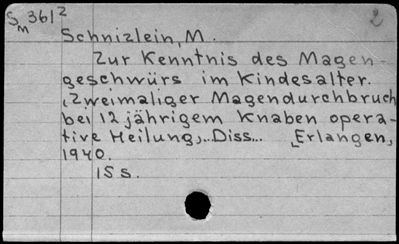 Sm 361² 2
Schnizlein, M.
Zur Kenntnis des Magen-
geschwürs im Kindesalter.
(Zweimaliger Magendurchbruch
bei 12 jährigem Knaben opera-
tive Heilung)... Diss... Erlangen,
1940.
15 s.